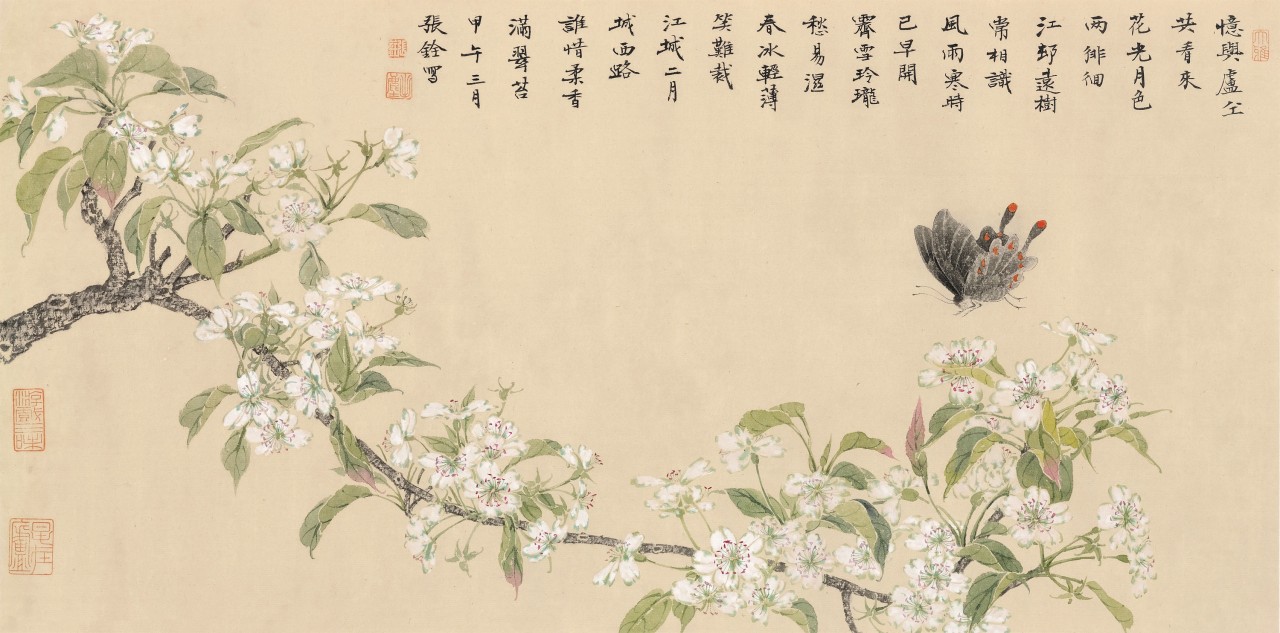 憶與盧仝
共看來
花光月色
兩徘徊
江邨遠樹
常相識
風雨寒時
已早開
霽雪玲瓏
愁易溼
春冰輕薄
笑難裁
江城二月
城西路
誰惜柔香
滿翠苔
甲午三月
張銓寫